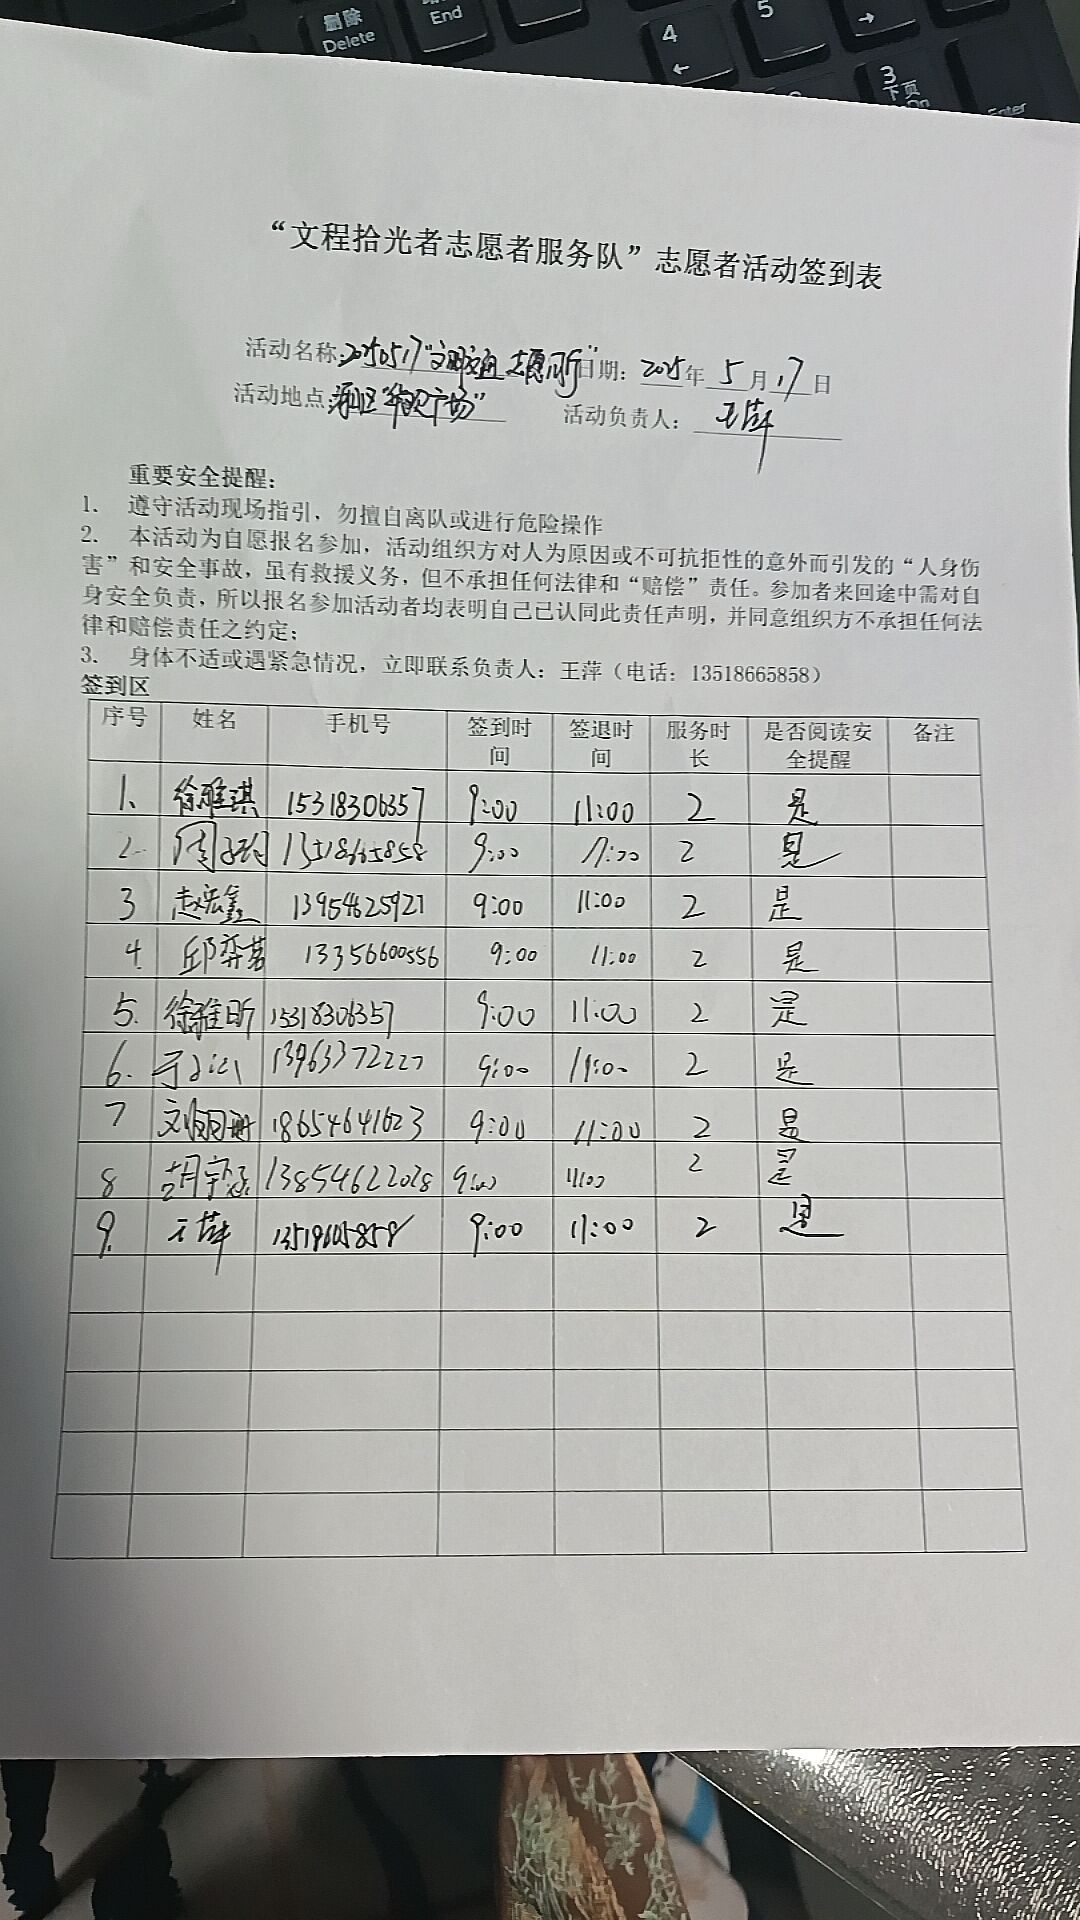 删除
Delete
End
4
←
5
→
3
下页
Enter
“文程拾光者志愿者服务队”志愿者活动签到表
活动名称:20250517“文明交通 志愿同行” 日期：2025年5月17日
活动地点: 广场” 活动负责人：王萍
重要安全提醒：
1. 遵守活动现场指引，勿擅自离队或进行危险操作
2. 本活动为自愿报名参加，活动组织方对人为原因或不可抗拒性的意外而引发的“人身伤
害”和安全事故，虽有救援义务，但不承担任何法律和“赔偿”责任。参加者来回途中需对自
身安全负责，所以报名参加活动者均表明自己已认同此责任声明，并同意组织方不承担任何法
律和赔偿责任之约定；
3. 身体不适或遇紧急情况，立即联系负责人：王萍（电话：13518665858）
签到区
序号 姓名 手机号 签到时间 签退时间 服务时长 是否阅读安全提醒 备注
1、 徐雅琪 15318306357 9:00 11:00 2 是
2 周 13518665858 9:00 11:00 2 是
3 赵宏鑫 13954625921 9:00 11:00 2 是
4. 邱弈茗 13356600556 9:00 11:00 2 是
5. 徐雅昕 15318306357 9:00 11:00 2 是
6. 13963372227 9:00 11:00 2 是
7 刘明珊 18654641623 9:00 11:00 2 是
8 胡宇涵 13854622028 9:00 11:00 2 是
9. 王萍 13518665858 9:00 11:00 2 是